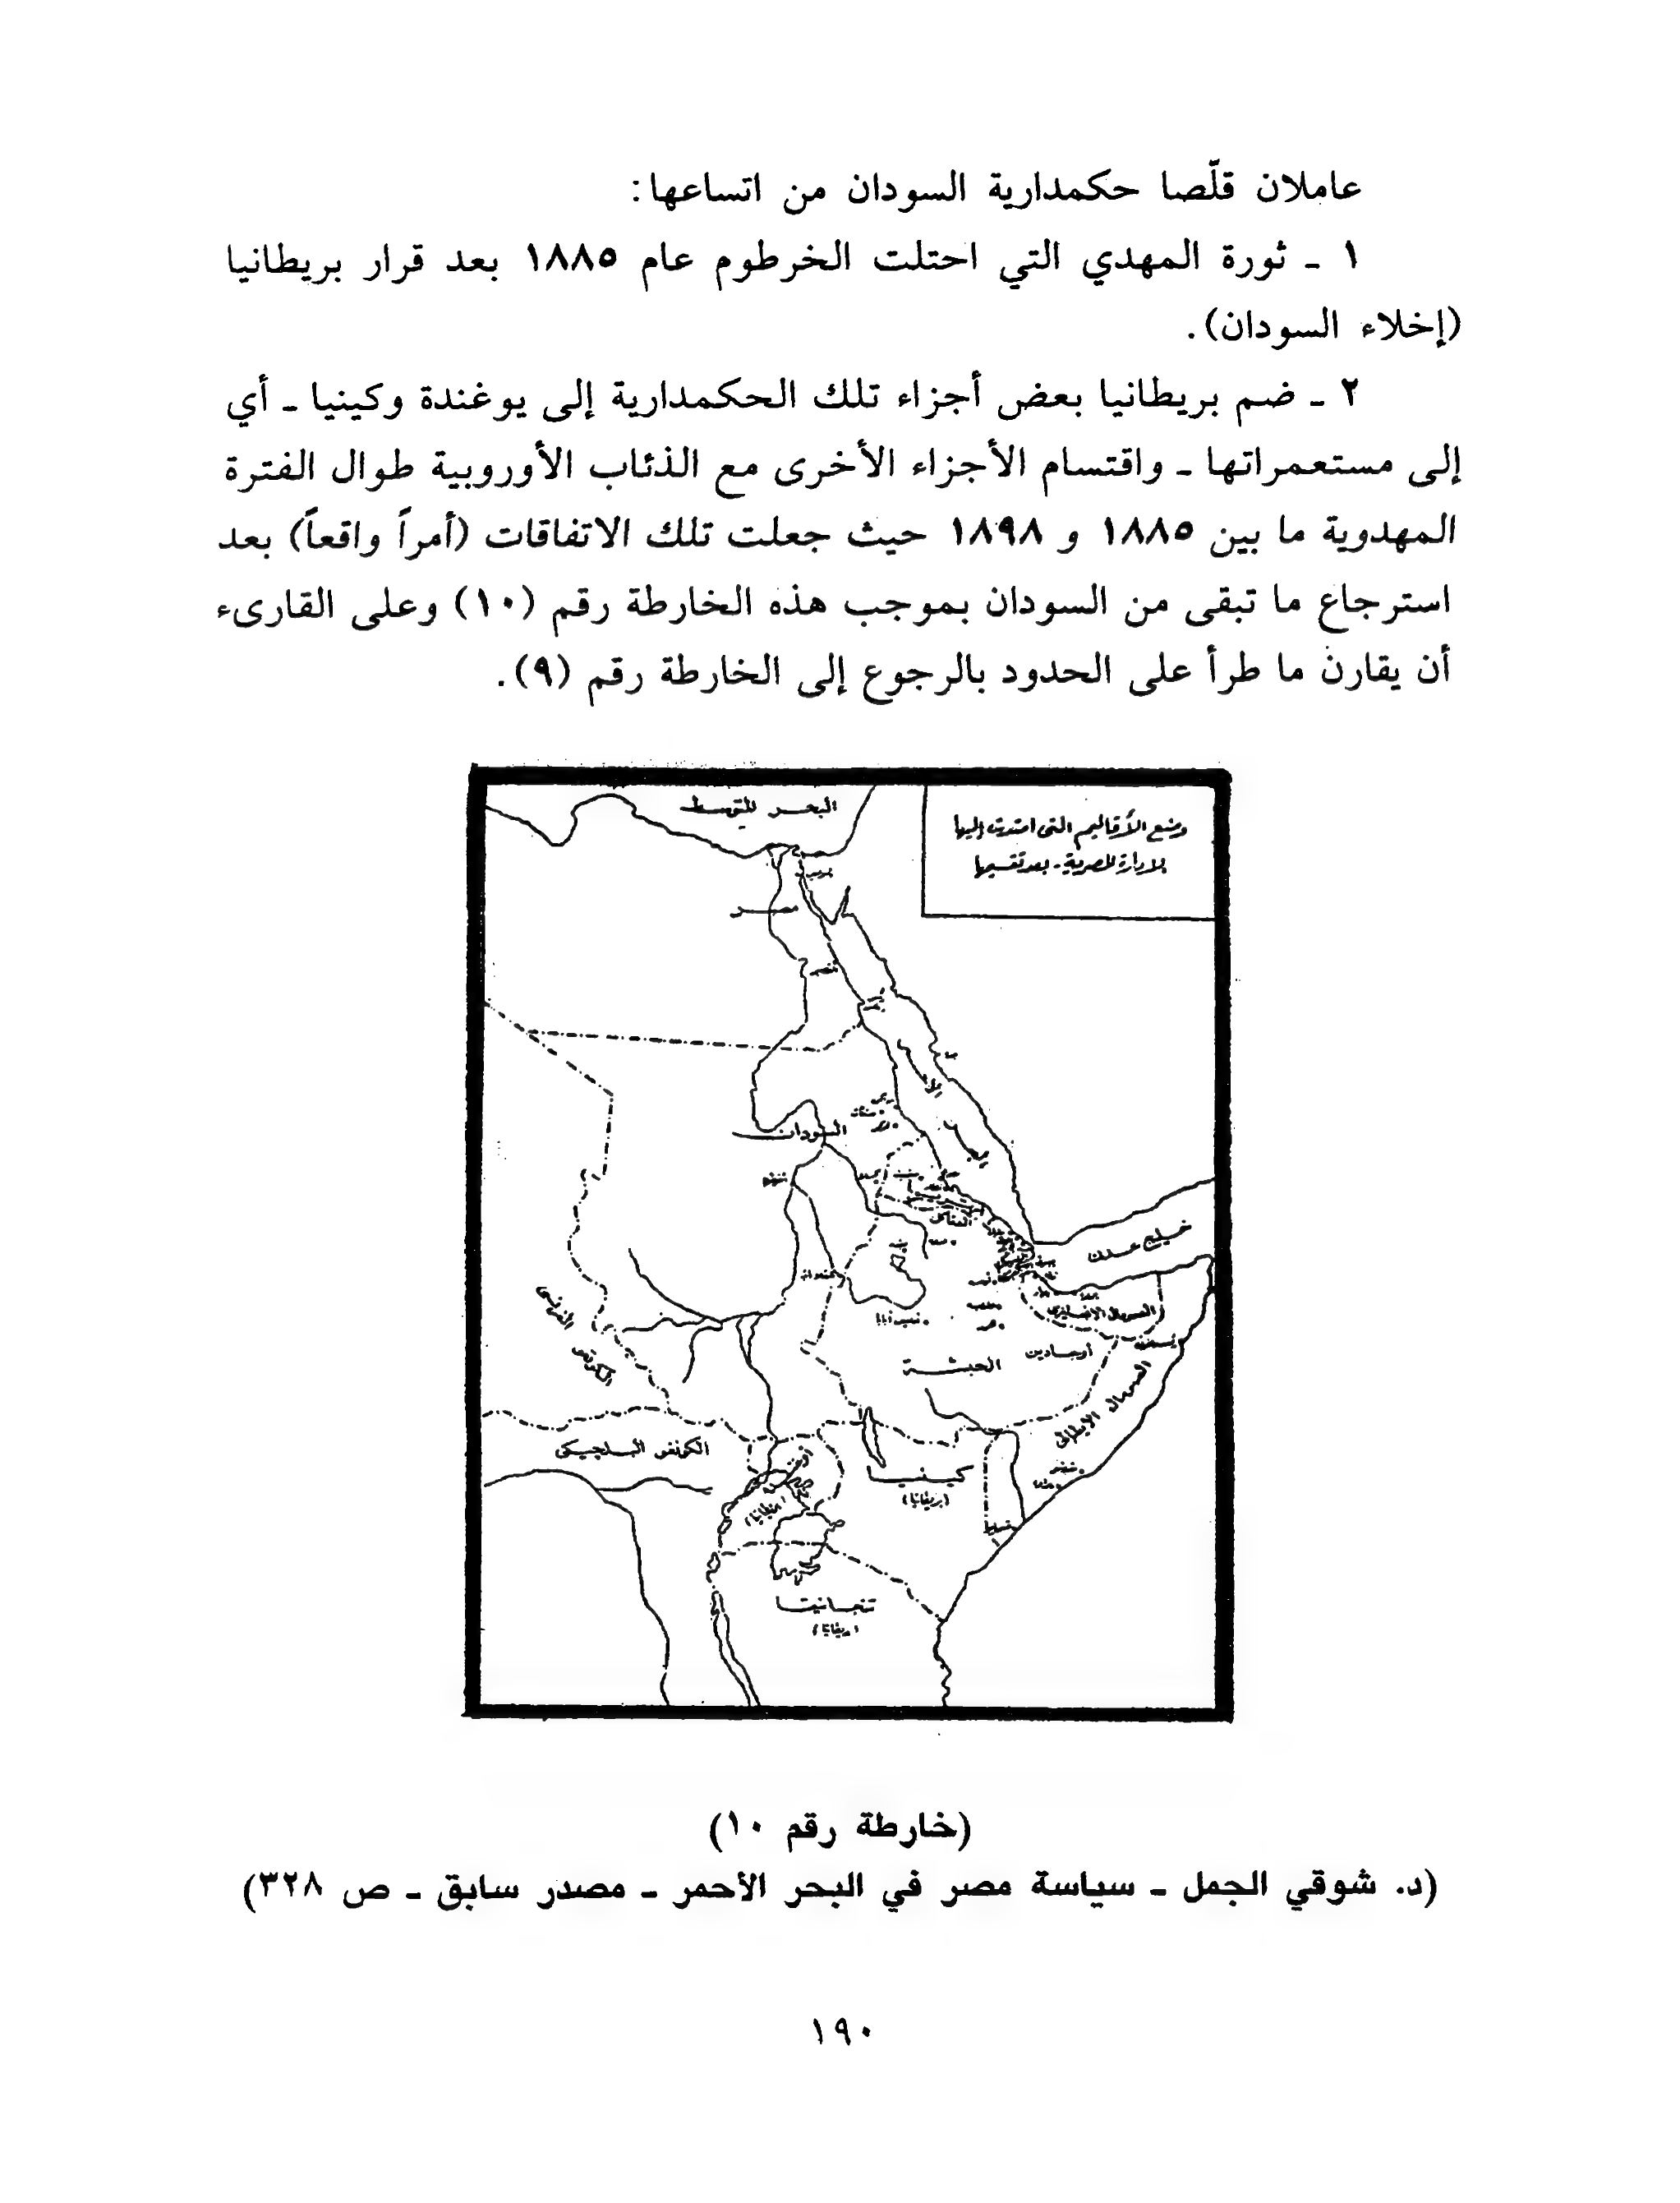 عاملان قلّصا حكمدارية السودان من اتساعها:
١ ـ ثورة المهدي التي احتلت الخرطوم عام ١٨٨٥ بعد قرار بريطانيا
(إخلاء السودان).
٢ ـ ضم بريطانيا بعض أجزاء تلك الحكمدارية إلى يوغندة وكينيا ـ أي
إلى مستعمراتها ـ واقتسام الأجزاء الأخرى مع الذئاب الأوروبية طوال الفترة
المهدوية ما بين ١٨٨٥ و ١٨٩٨ حيث جعلت تلك الاتفاقات (أمراً واقعاً) بعد
استرجاع ما تبقى من السودان بموجب هذه الخارطة رقم (١٠) وعلى القارىء
أن يقارن ما طرأ على الحدود بالرجوع إلى الخارطة رقم (٩).
البحر المتوسط
وضع الأقاليم التى امتدت إليها
الإدارة المصرية - بعد تقسيمها
مصر
السودان
خليج عدن
الصومال الإنجليزى
الحبشة
أوجادين
الصومال الايطالى
الكونغو
الفرنسى
الكونغو البلجيكى
كينيا
(بريطانيا)
تنجانيقا
(بريطانيا)
(خارطة رقم ١٠)
(د. شوقي الجمل ـ سياسة مصر في البحر الأحمر ـ مصدر سابق ـ ص ٣٢٨)
١٩٠